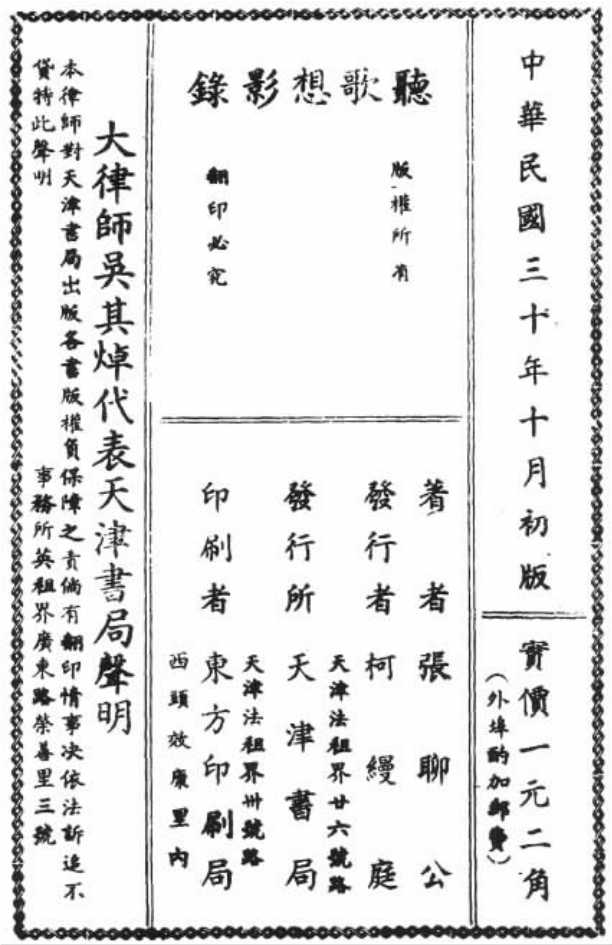 中華民國三十年十月初版
實價一元二角
（外埠酌加郵費）
聽歌想影錄
版權所有
翻印必究
著者張聊公
發行者柯縵庭
天津法租界廿六號路
發行所天津書局
天津法租界卅號路
印刷者東方印刷局
西頭效康里內
大律師吳其焯代表天津書局聲明
本律師對天津書局出版各書版權負保障之責倘有翻印情事決依法訴追不
貸特此聲明
事務所英租界廣東路榮善里三號